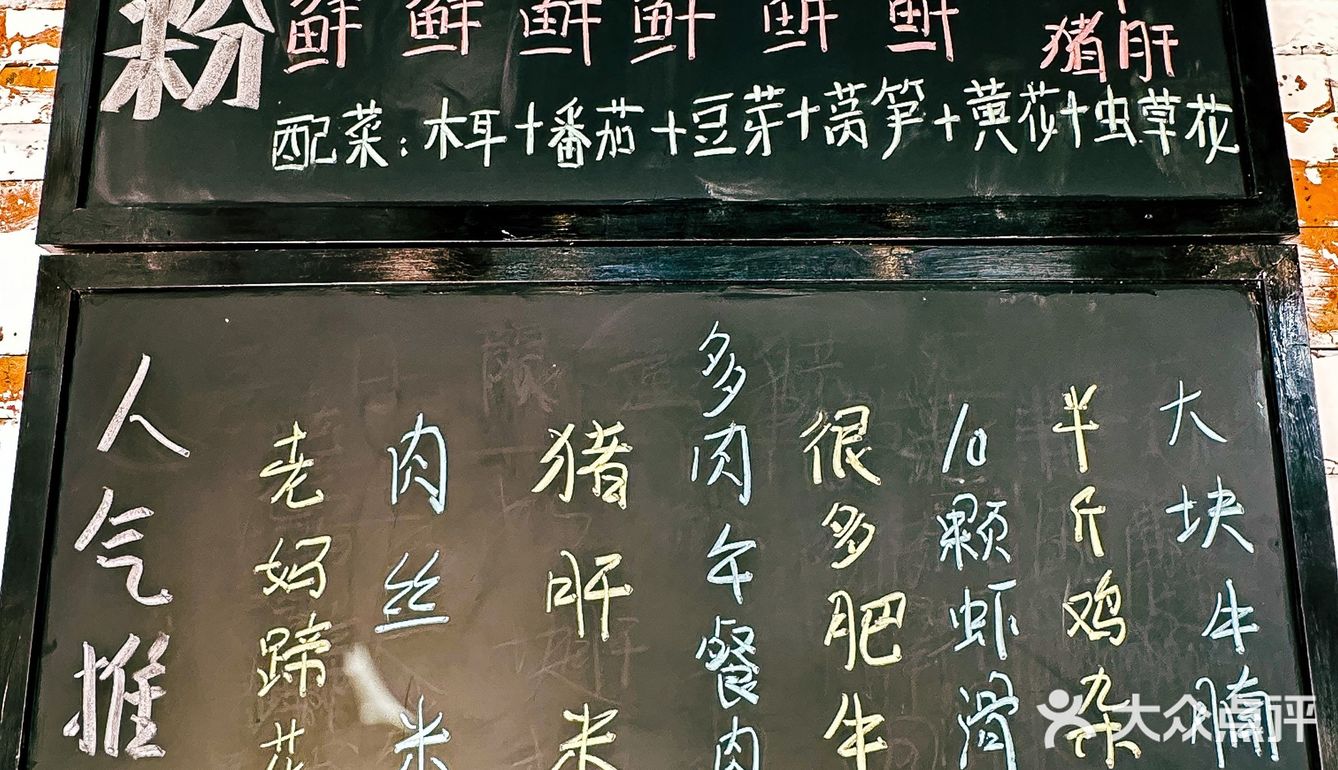 粉
鲜 鲜 鲜 鲜 鲜 鲜 猪肝
配菜:木耳+番茄+豆芽+莴笋+黄花+虫草花
人气推
老妈蹄花
肉丝米
猪肝米
多肉午餐肉
很多肥牛
10颗虾滑
半斤鸡杂
大块牛腩
大众点评